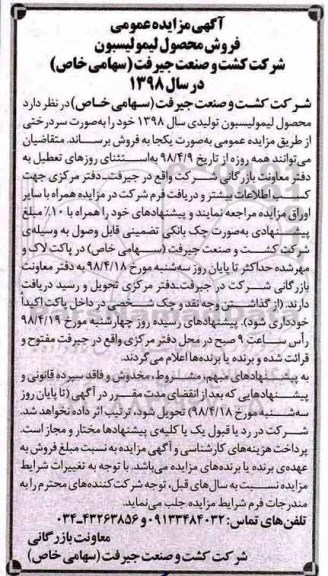 آگهی مزایده عمومی
فروش محصول لیمولیسبون
شرکت کشت و صنعت جیرفت (سهامی خاص)
در سال ۱۳۹۸
شرکت کشت و صنعت جیرفت (سهامی خاص) در نظر دارد
محصول لیمولیسبون تولیدی سال ۱۳۹۸ خود را به‌صورت سردرختی
از طریق مزایده عمومی به‌صورت یکجا به فروش برساند. متقاضیان
می‌توانند همه روزه از تاریخ ۹۸/۴/۹ به‌استثنای روزهای تعطیل به
دفتر معاونت بازرگانی شرکت واقع در جیرفت-دفتر مرکزی جهت
کسب اطلاعات بیشتر و دریافت فرم شرکت در مزایده همراه با سایر
اوراق مزایده مراجعه نمایند و پیشنهادهای خود را همراه با ۱۰٪ مبلغ
پیشنهادی به‌صورت چک بانکی تضمینی قابل وصول به وسیله‌ی
شرکت کشت و صنعت جیرفت (سهامی خاص) در پاکت لاک و
مهر شده حداکثر تا پایان روز سه‌شنبه مورخ ۹۸/۴/۱۸ به دفتر معاونت
بازرگانی شرکت در جیرفت-دفتر مرکزی تحویل و رسید دریافت
دارند. (از گذاشتن وجه نقد و چک شخصی در داخل پاکت اکیداً
خودداری شود). پیشنهادهای رسیده روز چهارشنبه مورخ ۹۸/۴/۱۹
رأس ساعت ۹ صبح در محل دفتر مرکزی واقع در جیرفت مفتوح و
قرائت شده و برنده یا برنده‌ها اعلام می‌گردند.
به پیشنهادهای مبهم، مشروط، مخدوش و فاقد سپرده قانونی و
پیشنهادهایی که بعد از انقضای مدت مقرر در آگهی (تا پایان روز
سه‌شنبه مورخ ۹۸/۴/۱۸) تحویل شود، ترتیب اثر داده نخواهد شد.
شرکت در رد یا قبول یک یا کلیه‌ی پیشنهادها مختار و مجاز است.
پرداخت هزینه‌های کارشناسی و آگهی مزایده به نسبت مبلغ فروش به
عهده‌ی برنده یا برنده‌های مزایده می‌باشد. با توجه به تغییرات شرایط
مزایده نسبت به سال‌های قبل، توجه شرکت‌کننده‌های محترم را به
مندرجات فرم شرایط مزایده جلب می‌نماید.
تلفن‌های تماس: ۰۹۱۳۳۴۸۴۰۳۲ و ۴۳۲۶۳۸۵۶-۰۳۴
معاونت بازرگانی
شرکت کشت و صنعت جیرفت (سهامی خاص)